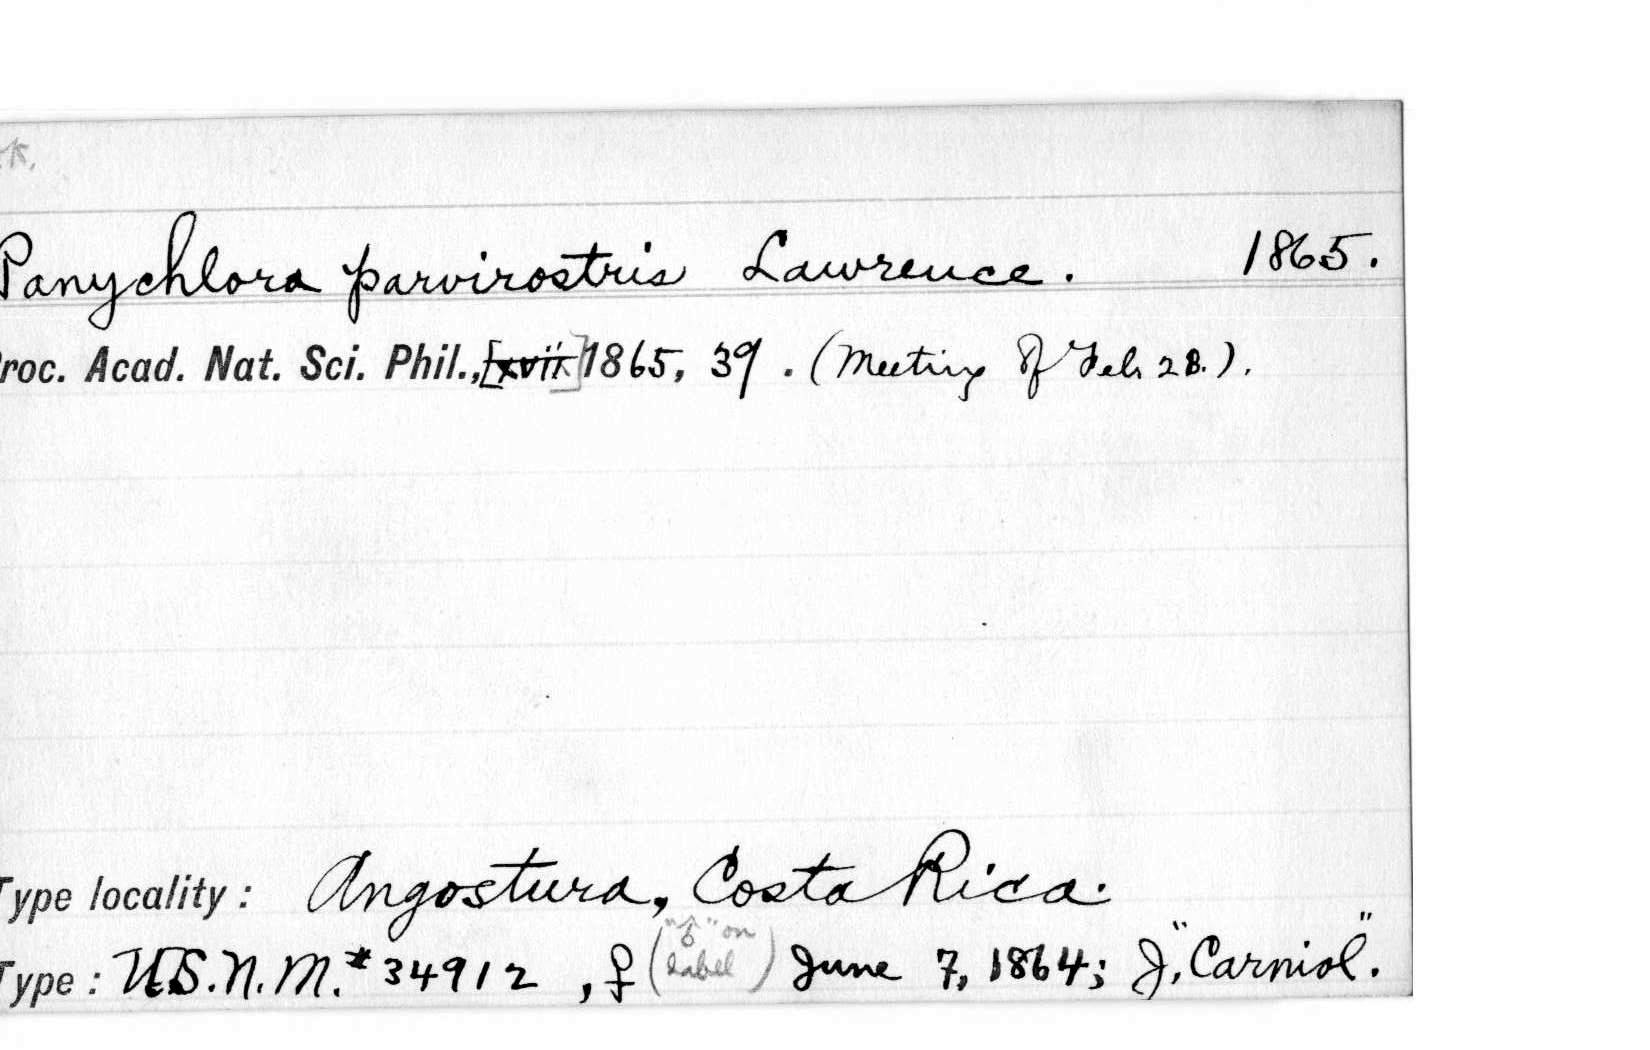 k.
Panychlora parvirostris Lawrence. 1865.
roc. Acad. Nat. Sci. Phil., [xvii] 1865, 39. (Meeting of Feb 28.).
Type locality: Angostura, Costa Rica.
Type: U.S.N.M. # 34912, ♀ ("♂" on label) June 7, 1864; J. "Carniol".